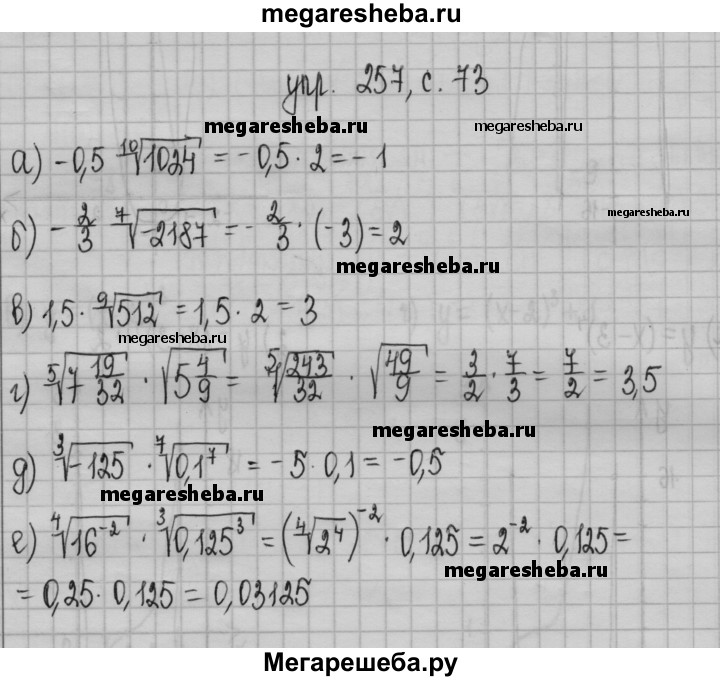 megaresheba.ru
упр. 257, с. 73
megaresheba.ru megaresheba.ru
а) -0,5 ¹⁰√1024 = -0,5 · 2 = -1
megaresheba.ru
б) -2/3 ⁷√-2187 = -2/3 · (-3) = 2
megaresheba.ru
в) 1,5 · ⁹√512 = 1,5 · 2 = 3
megaresheba.ru
г) ⁵√7 19/32 · √5 4/9 = ⁵√243/32 · √49/9 = 3/2 · 7/3 = 7/2 = 3,5
megaresheba.ru
д) ³√-125 · ⁷√0,1⁷ = -5 · 0,1 = -0,5
megaresheba.ru
е) ⁴√16⁻² · ³√0,125³ = (⁴√2⁴)⁻² · 0,125 = 2⁻² · 0,125 =
megaresheba.ru
= 0,25 · 0,125 = 0,03125
Мегарешеба.ру